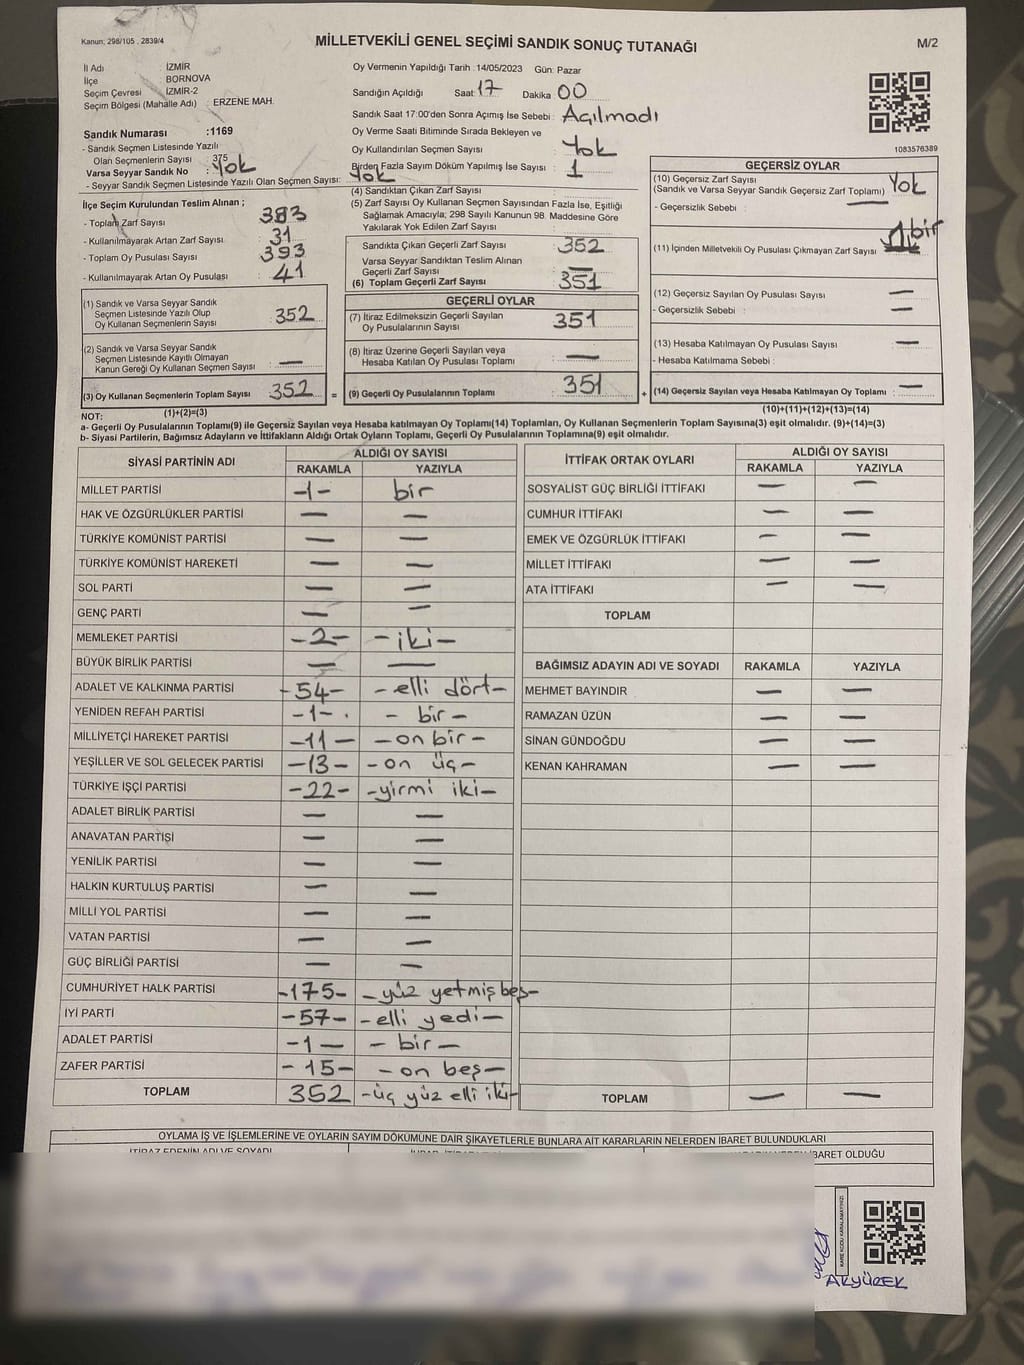 Kanun; 298/105 , 2839/4
MİLLETVEKİLİ GENEL SEÇİMİ SANDIK SONUÇ TUTANAĞI
M/2
İl Adı : İZMİR
İlçe : BORNOVA
Seçim Çevresi : İZMİR-2
Seçim Bölgesi (Mahalle Adı) : ERZENE MAH.
Sandık Numarası :1169
- Sandık Seçmen Listesinde Yazılı
Olan Seçmenlerin Sayısı : 375
Varsa Seyyar Sandık No : Yok
- Seyyar Sandık Seçmen Listesinde Yazılı Olan Seçmen Sayısı: Yok
İlçe Seçim Kurulundan Teslim Alınan ;
- Toplam Zarf Sayısı : 383
- Kullanılmayarak Artan Zarf Sayısı : 31
- Toplam Oy Pusulası Sayısı : 393
- Kullanılmayarak Artan Oy Pusulası : 41
(1) Sandık ve Varsa Seyyar Sandık
Seçmen Listesinde Yazılı Olup
Oy Kullanan Seçmenlerin Sayısı : 352
(2) Sandık ve Varsa Seyyar Sandık
Seçmen Listesinde Kayıtlı Olmayan
Kanun Gereği Oy Kullanan Seçmen Sayısı : —
(3) Oy Kullanan Seçmenlerin Toplam Sayısı : 352
Oy Vermenin Yapıldığı Tarih : 14/05/2023 Gün: Pazar
Sandığın Açıldığı Saat: 17 Dakika : 00
Sandık Saat 17:00'den Sonra Açımış İse Sebebi : Açılmadı
Oy Verme Saati Bitiminde Sırada Bekleyen ve
Oy Kullandırılan Seçmen Sayısı : Yok
Birden Fazla Sayım Döküm Yapılmış İse Sayısı : 1
(4) Sandıktan Çıkan Zarf Sayısı :
(5) Zarf Sayısı Oy Kullanan Seçmen Sayısından Fazla İse, Eşitliği
Sağlamak Amacıyla; 298 Sayılı Kanunun 98. Maddesine Göre
Yakılarak Yok Edilen Zarf Sayısı :
Sandıkta Çıkan Geçerli Zarf Sayısı : 352
Varsa Seyyar Sandıktan Teslim Alınan
Geçerli Zarf Sayısı : —
(6) Toplam Geçerli Zarf Sayısı : 351
GEÇERLİ OYLAR
(7) İtiraz Edilmeksizin Geçerli Sayılan
Oy Pusulalarının Sayısı : 351
(8) İtiraz Üzerine Geçerli Sayılan veya
Hesaba Katılan Oy Pusulası Toplamı : —
= (9) Geçerli Oy Pusulalarının Toplamı : 351
1083576389
GEÇERSİZ OYLAR
(10) Geçersiz Zarf Sayısı
(Sandık ve Varsa Seyyar Sandık Geçersiz Zarf Toplamı) : Yok
- Geçersizlik Sebebi : —
(11) İçinden Milletvekili Oy Pusulası Çıkmayan Zarf Sayısı : 1 bir
(12) Geçersiz Sayılan Oy Pusulası Sayısı : —
- Geçersizlik Sebebi : —
(13) Hesaba Katılmayan Oy Pusulası Sayısı : —
- Hesaba Katılmama Sebebi :
+ (14) Geçersiz Sayılan veya Hesaba Katılmayan Oy Toplamı : —
NOT: (1)+(2)=(3)
(10)+(11)+(12)+(13)=(14)
a- Geçerli Oy Pusulaları Toplamı(9) ile Geçersiz Sayılan veya Hesaba katılmayan Oy Toplamı(14) Toplamları, Oy Kullanan Seçmenlerin Toplam Sayısına(3) eşit olmalıdır. (9)+(14)=(3)
b- Siyasi Partilerin, Bağımsız Adayların ve İttifakların Aldığı Ortak Oyların Toplamı, Geçerli Oy Pusulalarının Toplamına(9) eşit olmalıdır.
SİYASİ PARTİNİN ADI ALDIĞI OY SAYISI
RAKAMLA YAZIYLA
MİLLET PARTİSİ -1- bir
HAK VE ÖZGÜRLÜKLER PARTİSİ — —
TÜRKİYE KOMÜNİST PARTİSİ — —
TÜRKİYE KOMÜNİST HAREKETİ — —
SOL PARTİ — —
GENÇ PARTİ — —
MEMLEKET PARTİSİ -2- -iki-
BÜYÜK BİRLİK PARTİSİ — —
ADALET VE KALKINMA PARTİSİ -54- -elli dört-
YENİDEN REFAH PARTİSİ -1- - bir -
MİLLİYETÇİ HAREKET PARTİSİ -11- -on bir-
YEŞİLLER VE SOL GELECEK PARTİSİ -13- -on üç-
TÜRKİYE İŞÇİ PARTİSİ -22- -yirmi iki-
ADALET BİRLİK PARTİSİ — —
ANAVATAN PARTİSİ — —
YENİLİK PARTİSİ — —
HALKIN KURTULUŞ PARTİSİ — —
MİLLİ YOL PARTİSİ — —
VATAN PARTİSİ — —
GÜÇ BİRLİĞİ PARTİSİ — —
CUMHURİYET HALK PARTİSİ -175- -yüz yetmiş beş-
İYİ PARTİ -57- -elli yedi-
ADALET PARTİSİ -1- - bir -
ZAFER PARTİSİ -15- -on beş-
TOPLAM 352 -üç yüz elli iki-
İTTİFAK ORTAK OYLARI ALDIĞI OY SAYISI
RAKAMLA YAZIYLA
SOSYALİST GÜÇ BİRLİĞİ İTTİFAKI — —
CUMHUR İTTİFAKI — —
EMEK VE ÖZGÜRLÜK İTTİFAKI — —
MİLLET İTTİFAKI — —
ATA İTTİFAKI — —
TOPLAM
BAĞIMSIZ ADAYIN ADI VE SOYADI RAKAMLA YAZIYLA
MEHMET BAYINDIR — —
RAMAZAN ÜZÜN — —
SİNAN GÜNDOĞDU — —
KENAN KAHRAMAN — —
TOPLAM — —
OYLAMA İŞ VE İŞLEMLERİNE VE OYLARIN SAYIM DÖKÜMÜNE DAİR ŞİKAYETLERLE BUNLARA AİT KARARLARIN NELERDEN İBARET BULUNDUKLARI
İTİRAZ EDENİN ADI VE SOYADI
İBARET OLDUĞU
KARE KODU KARALAMAYINIZ!
AKYÜREK